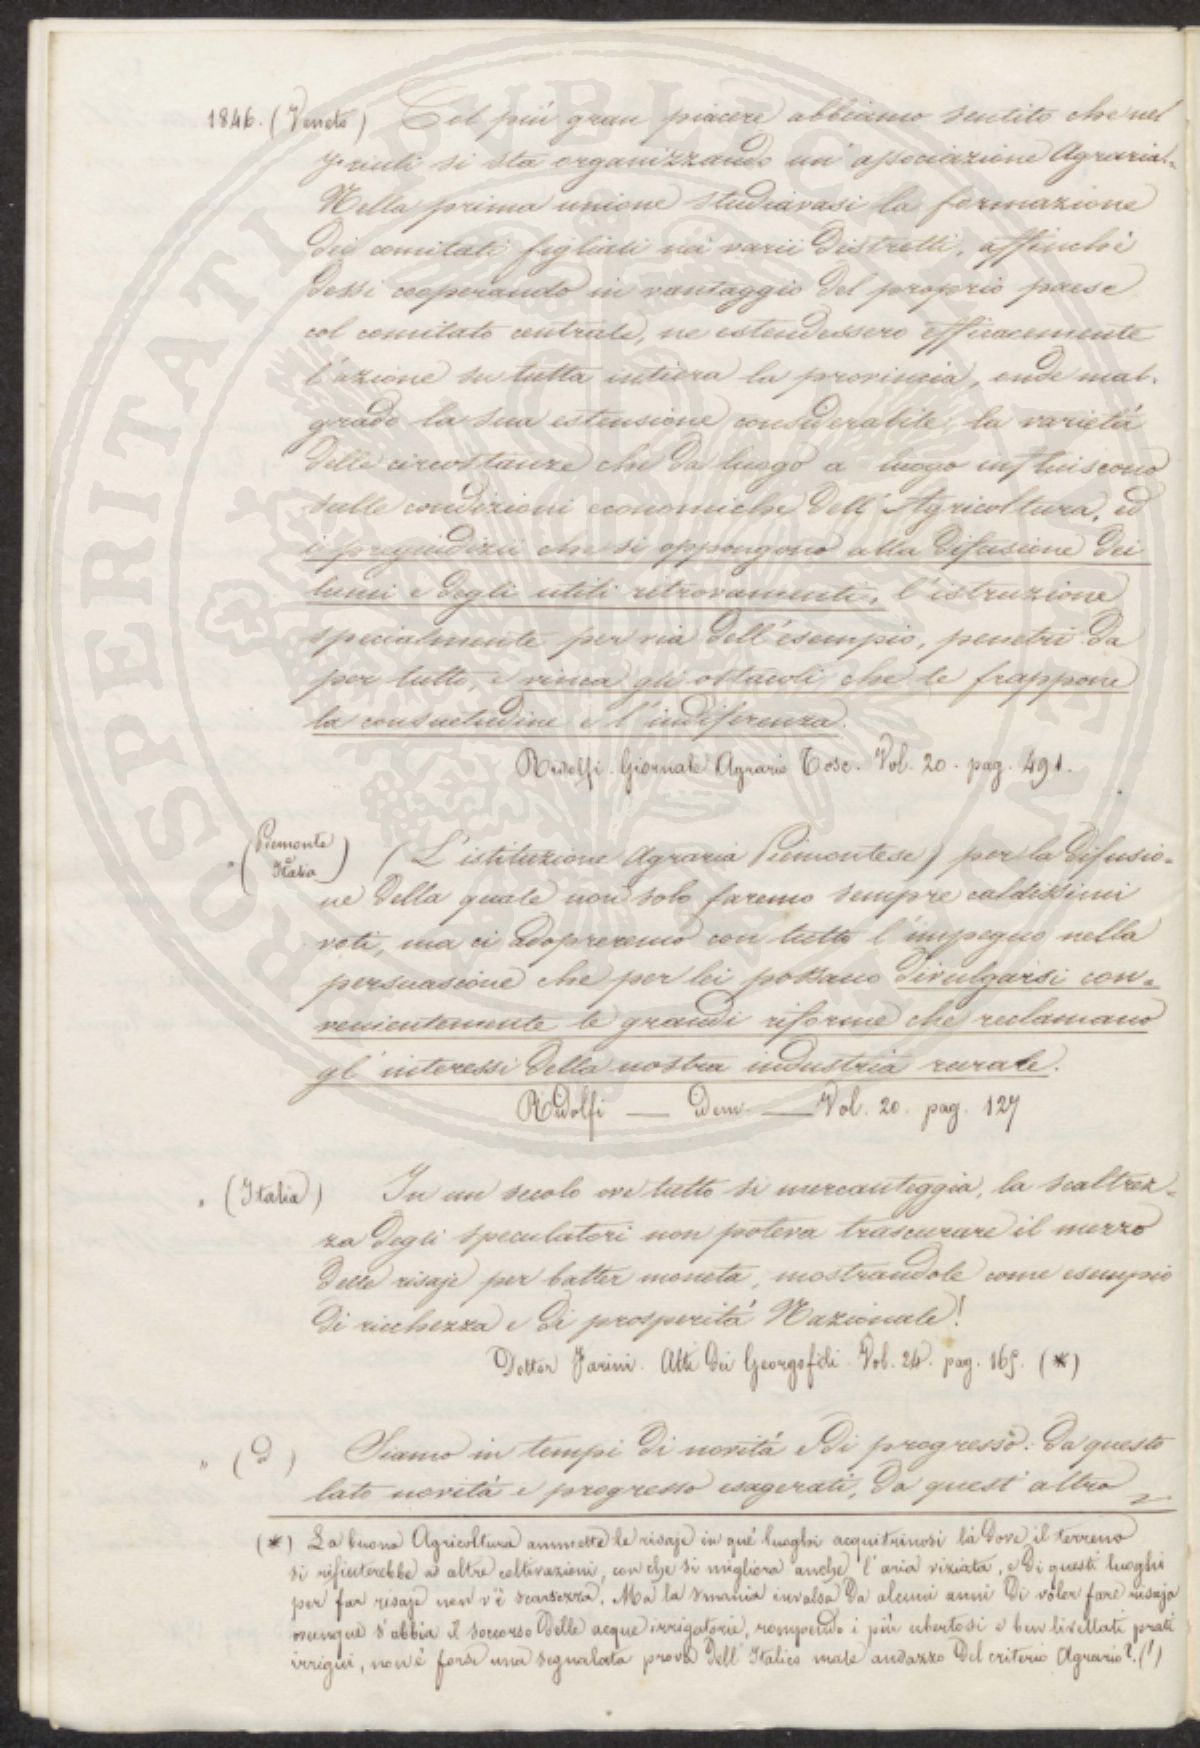 1846. (Veneto) Col più gran piacere abbiamo sentito che nel
Friuli si sta organizzando un' associazione Agraria.=
Nella prima unione studiavasi la formazione
dei comitati figliali nei varii distretti, affinchè
dessi cooperando in vantaggio del proprio paese
col comitato centrale, ne estendessero efficacemente
l'azione su tutta intiera la provincia, onde mal=
grado la sua estensione considerabile, la varietà
delle circostanze che da luogo a luogo influiscono
sulle condizioni economiche dell' Agricoltura, ed
i pregiudizii che si oppongono alla difusione dei
lumi e degli utili ritrovamenti, l'istruzione
specialmente per via dell'esempio, penetri da
per tutto, e vinca gli ostacoli che le frappone
la consuetudine e l'indiferenza.
Ridolfi. Giornale Agrario Tosc. Vol. 20. pag. 491.
" (Piemonte
ed
Italia) (L'istituzione Agraria Piemontese) per la difusio=
ne della quale non solo faremo sempre caldissimi
voti, ma ci adopreremo con tutto l'impegno nella
persuasione che per lei possano divulgarsi con=
venientemente le grandi riforme che reclamano
gl' interessi della nostra industria rurale.
Ridolfi — Idem. — Vol. 20. pag. 127
" (Italia) In un secolo ove tutto si mercanteggia, la scaltrez=
za degli speculatori non poteva trascurare il mezzo
delle risaje per batter moneta, mostrandole come esempio
di ricchezza e di prosperità Nazionale!
Dottor Farini. Atti dei Georgofili. Vol. 24. pag. 165. (*)
" (d) Siamo in tempi di novità e di progresso: da questo
lato novità e progresso esagerati, da quest' altro
(*) La buona Agricoltura ammette le risaje in que' luoghi acquitrinosi là dove il terreno
si rifiuterebbe ad altre coltivazioni, con che si migliora anche l'aria viziata, e di questi luoghi
per far risaje non v'è scarsezza. Ma la smania invalsa da alcuni anni di voler fare risaja
ovunque s'abbia il soccorso delle acque irrigatorie, rompendo i più ubertosi e ben livellati prati
irrigui, non è forse una segnalata prova dell' Italico male andazzo del criterio Agrario?. (!)